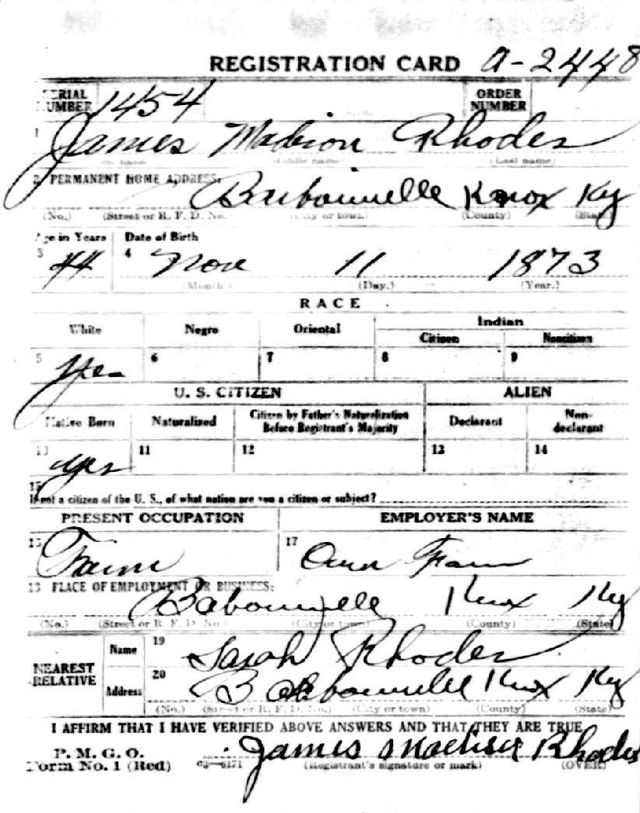 REGISTRATION CARD A-2448
SERIAL NUMBER 1454 ORDER NUMBER
1 James Madison Rhodes
(Middle name) (Last name)
2 PERMANENT HOME ADDRESS:
Barbourville Knox Ky
(No.) (Street or R. F. D. No. (City or town) (County) (State)
Age in Years Date of Birth
3 44 4 Nov 11 1873
(Month.) (Day.) (Year.)
RACE
White Negro Oriental Indian
Citizen Noncitizen
5 Yes 6 7 8 9
U. S. CITIZEN ALIEN
Native Born Naturalized Citizen by Father's Naturalization Before Registrant's Majority Declarant Non-declarant
10 Yes 11 12 13 14
15
If not a citizen of the U. S., of what nation are you a citizen or subject?
PRESENT OCCUPATION EMPLOYER'S NAME
16 Farm 17 Own Farm
18 PLACE OF EMPLOYMENT OR BUSINESS:
Barbourville Knox Ky
(No.) (Street or R. F. D. No.) (City or town) (County) (State)
NEAREST RELATIVE Name 19 Sarah Rhodes
Address 20 Barbourville Knox Ky
(No.) (Street or R. F. D. No.) (City or town) (County) (State)
I AFFIRM THAT I HAVE VERIFIED ABOVE ANSWERS AND THAT THEY ARE TRUE
P. M. G. O.
Form No. 1 (Red) 03-6171 James Madison Rhodes
(Registrant's signature or mark) (OVER)